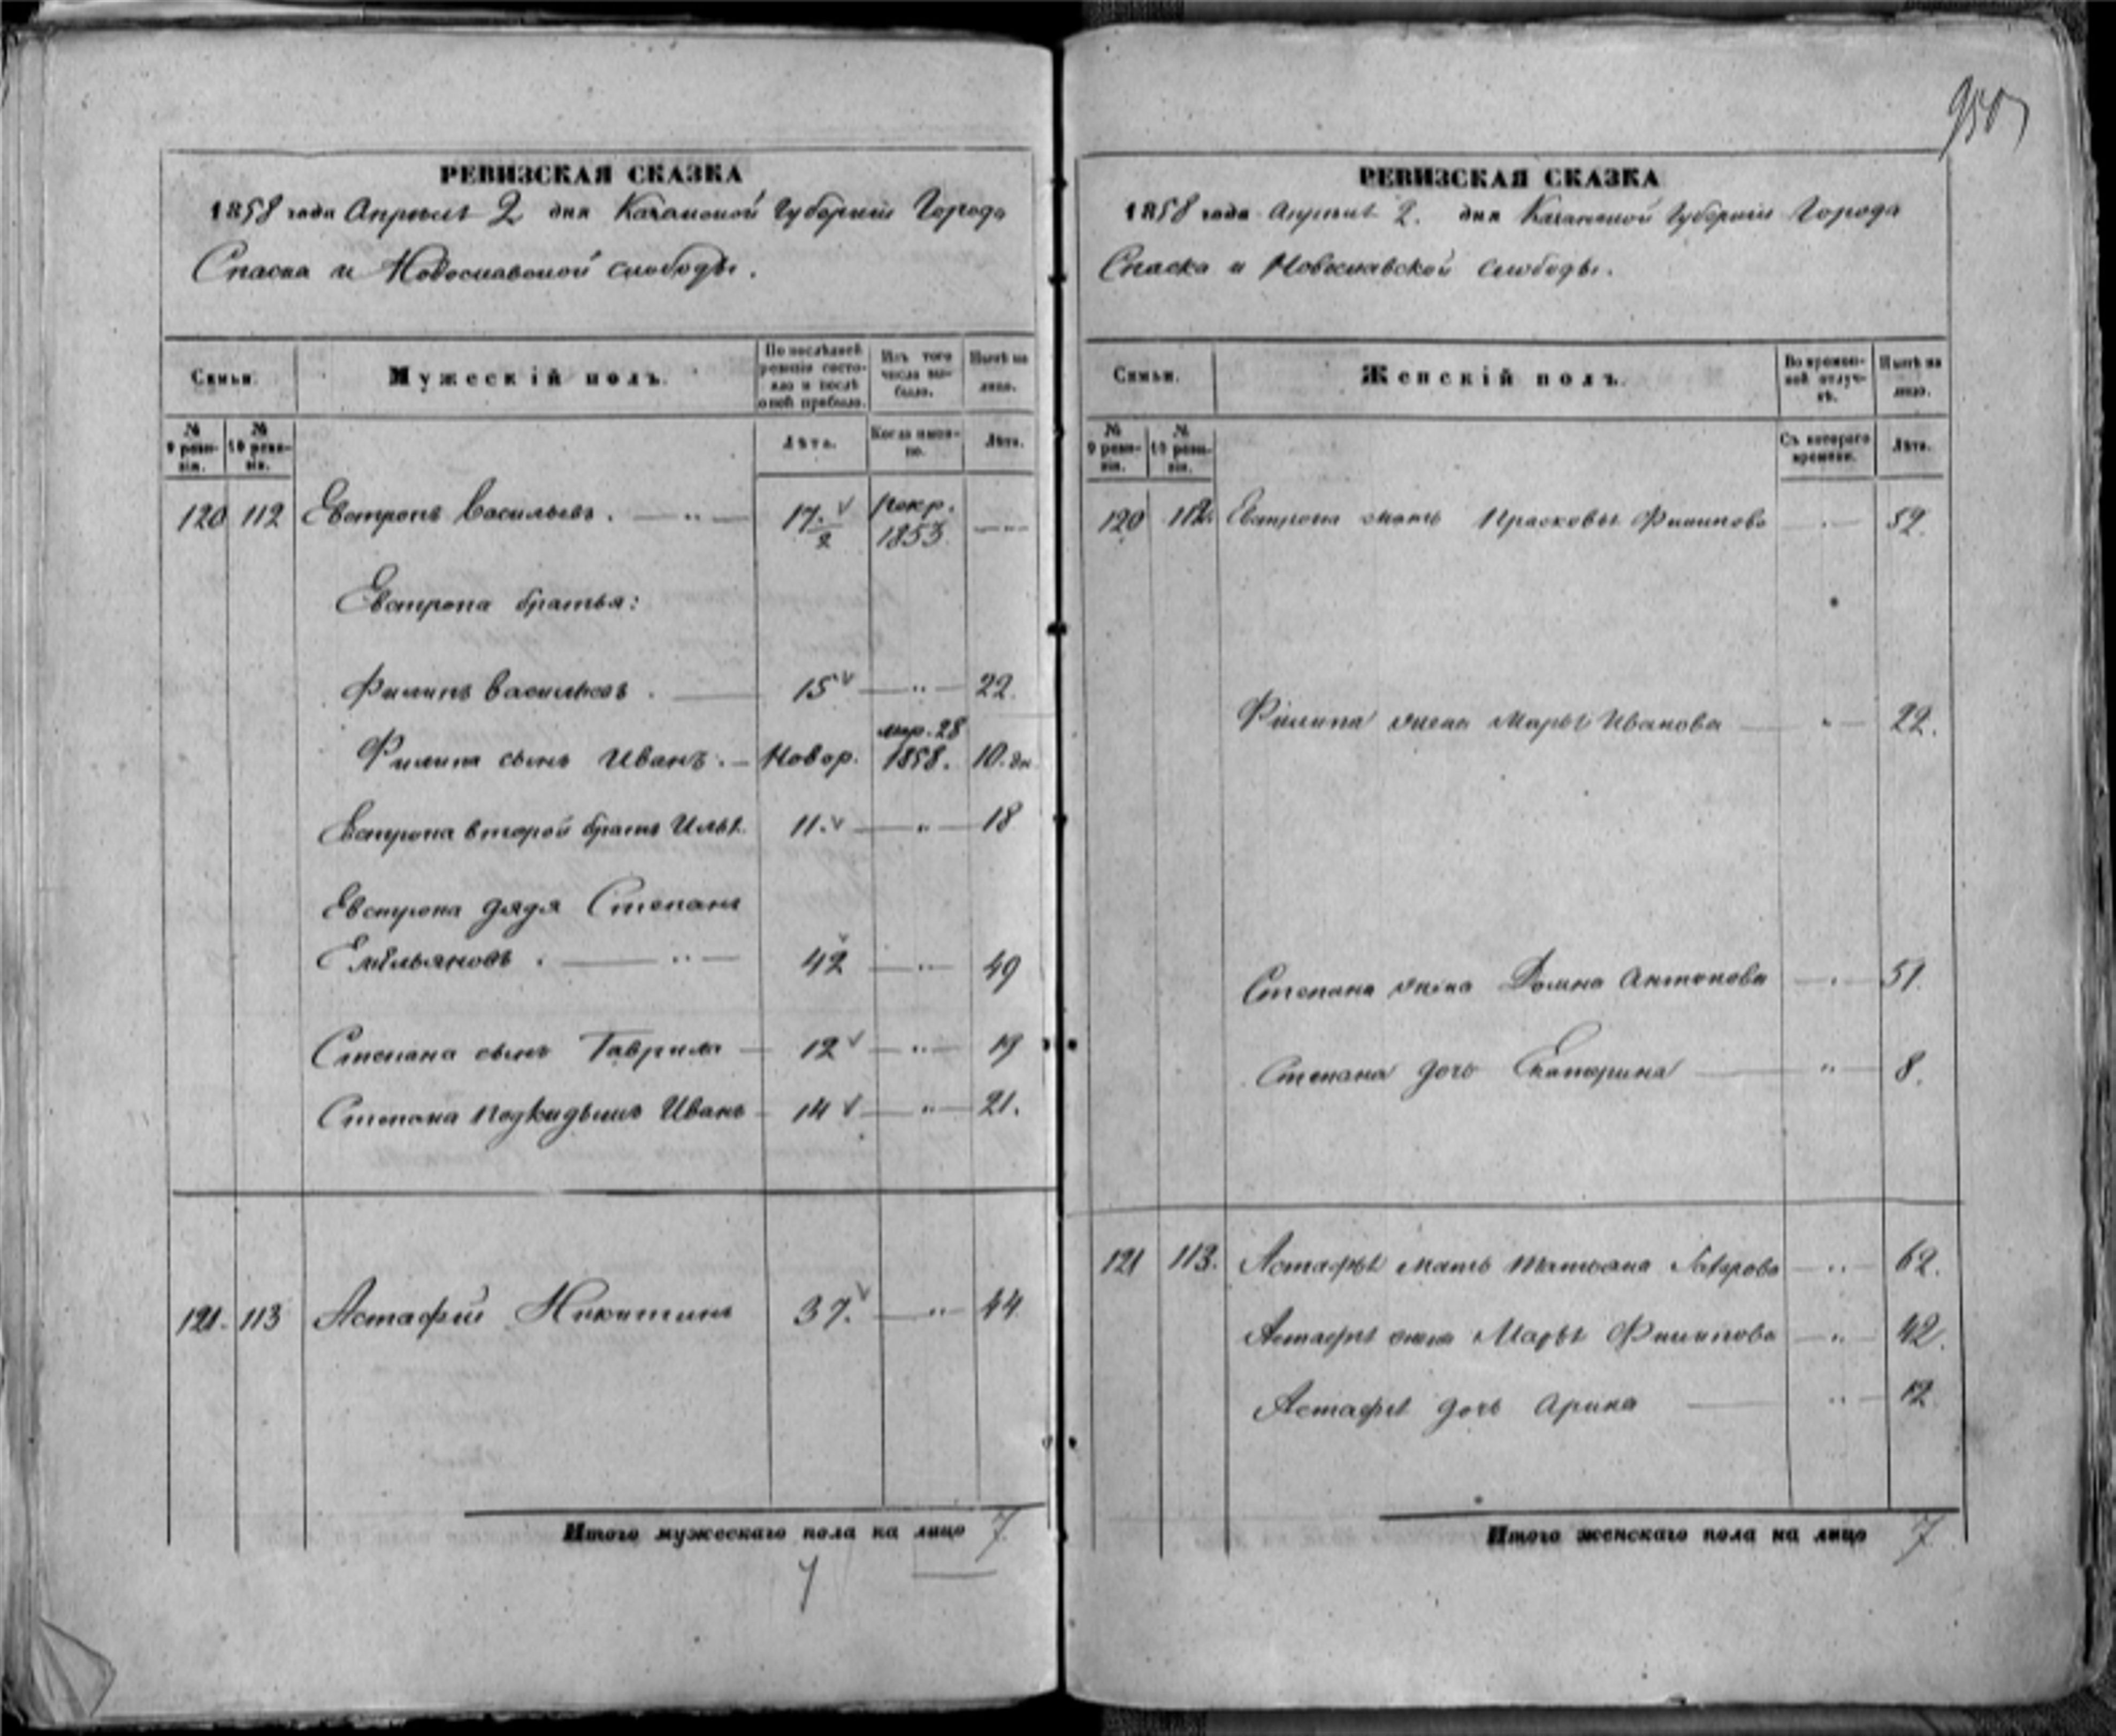 950
РЕВИЗСКАЯ СКАЗКА
1858 года Апреля 2 дня Казанской Губернiи Города
Спаска и Новоспавской слободы.
Семьи.
Мужескiй полъ.
По послѣдней ревизiи состояло и послѣ оной прибыло.
Изъ того числа выбыло.
Нынѣ на лицо.
№ 9 ревизiи.
№ 10 ревизiи.
Лѣта.
Когда именно.
Лѣта.
120 112 Евстропъ Васильевъ. 17. 2 рекр. 1853
Евстропа братья:
Филипъ Васильевъ. 15 22.
Филипа сынъ Иванъ. Новор. мар. 28 1858. 10. дн.
Евстропа второй братъ Илья 11. 18
Евстропа дядя Степанъ
Емельяновъ. 42 49
Степана сынъ Гаврила 12 19
Степана подкидышъ Иванъ 14 21.
121. 113 Астафiй Никитинъ 37. 44
Итого мужескаго пола на лицо 7
7
РЕВИЗСКАЯ СКАЗКА
1858 года Апреля 2. дня Казанской Губернiи Города
Спаска и Новоспавской слободы.
Семьи.
Женскiй полъ.
Во временной отлучкѣ.
Нынѣ на лицо.
№ 9 ревизiи.
№ 10 ревизiи.
Съ котораго времени.
Лѣта.
120 112. Евстропа мать Прасковья Филипова 52.
Филипа жена Марья Иванова 22.
Степана жена Домна Антонова 51.
Степана дочь Екатерина 8.
121 113. Астафья мать Татьяна 62.
Астафья жена Марья Филипова 42.
Астафья дочь Арина 12
Итого женскаго пола на лицо 7